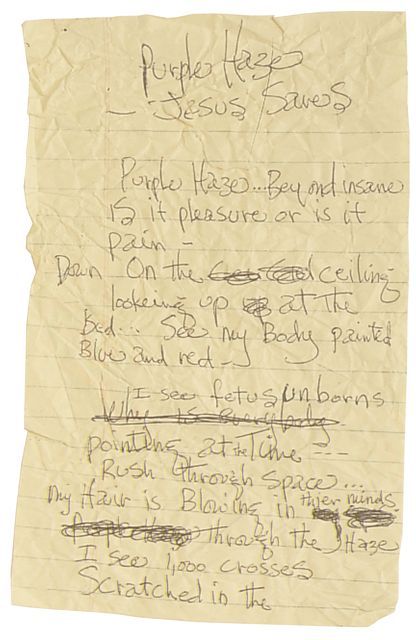 Purple Haze
– Jesus Saves
Purple Haze... Beyond insane
Is it pleasure or is it
pain –
Down On the ceiling
lookeing up at the
Bed... See my Body painted
Blue and red –
I see fetus unborns
Why is everybody
pointing at the Time ---
Rush through space...
my Hair is Blowing in thier minds
through the Haze
I see 1,000 crosses
Scratched in the